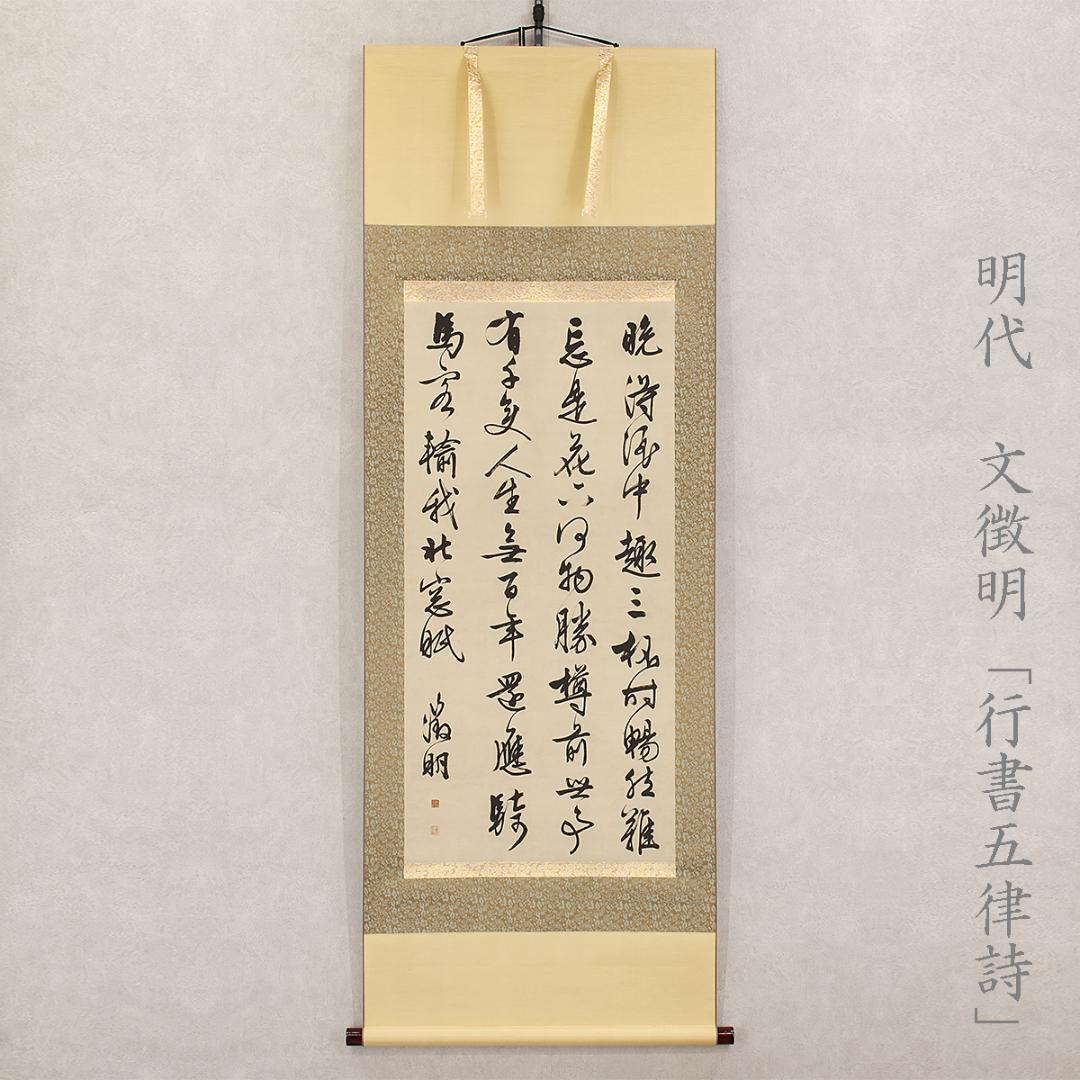 明代　文徴明「行書五律詩」
晚得酒中趣三杯時暢然難
忘是花下何物勝樽前世事
有千變人生無百年還應騎
馬客輸我北窓眠　徵明